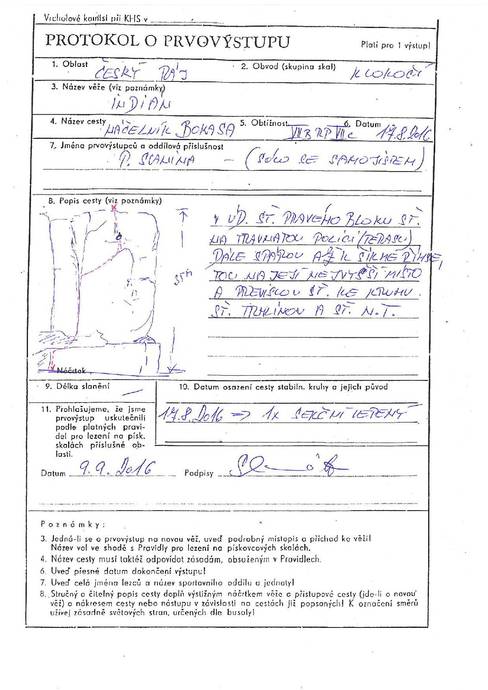 Vrcholové komisi při KHS v
PROTOKOL O PRVOVÝSTUPU
Platí pro 1 výstup!
1. Oblast ČESKÝ RÁJ
2. Obvod (skupina skal) KLOKOČÍ
3. Název věže (viz poznámky)
INDIÁN
4. Název cesty NÁČELNÍK BOKASA
5. Obtížnost VIIIb RP VIIIc
6. Datum 17.8.2016
7. Jména prvovýstupců a oddílová příslušnost
P. SLANINA – (SÓLO SE SAMOJIŠTĚM)
8. Popis cesty (viz poznámky)
V ÚD. ST. PRAVÉHO BLOKU ST.
NA TRAVNATOU POLICI (TERASU)
DÁLE SPÁROU AŽ K ŠIKMÉ ŘÍMSE,
PO NA JEJÍ NEJVYŠŠÍ MÍSTO
A PŘEVISLOU ST. KE KRUHU.
ST. TRHLINOU A ST. N.T.
35m
Náčrtek
9. Délka slanění
10. Datum osazení cesty stabiln. kruhy a jejich původ
17.8.2016 => 1x SEKČNÍ LEPENÝ
11. Prohlašujeme, že jsme
prvovýstup uskutečnili
podle platných pravi-
del pro lezení na písk.
skalách příslušné ob-
lasti.
Datum 9.9.2016
Podpisy
Poznámky:
3. Jedná-li se o prvovýstup na novou věž, uveď podrobný místopis a příchod ke věži!
Název vol ve shodě s Pravidly pro lezení na pískovcových skalách.
4. Název cesty musí taktéž odpovídat zásadám, obsaženým v Pravidlech.
6. Uveď přesné datum dokončení výstupu!
7. Uveď celá jména lezců a název sportovního oddílu a jednoty!
8. Stručný a čitelný popis cesty doplň výstižným náčrtkem věže a přístupové cesty (jde-li o novou
věž) a nákresem cesty nebo nástupu v závislosti na cestách již popsaných! K označení směrů
užívej zásadně světových stran, určených dle busoly!